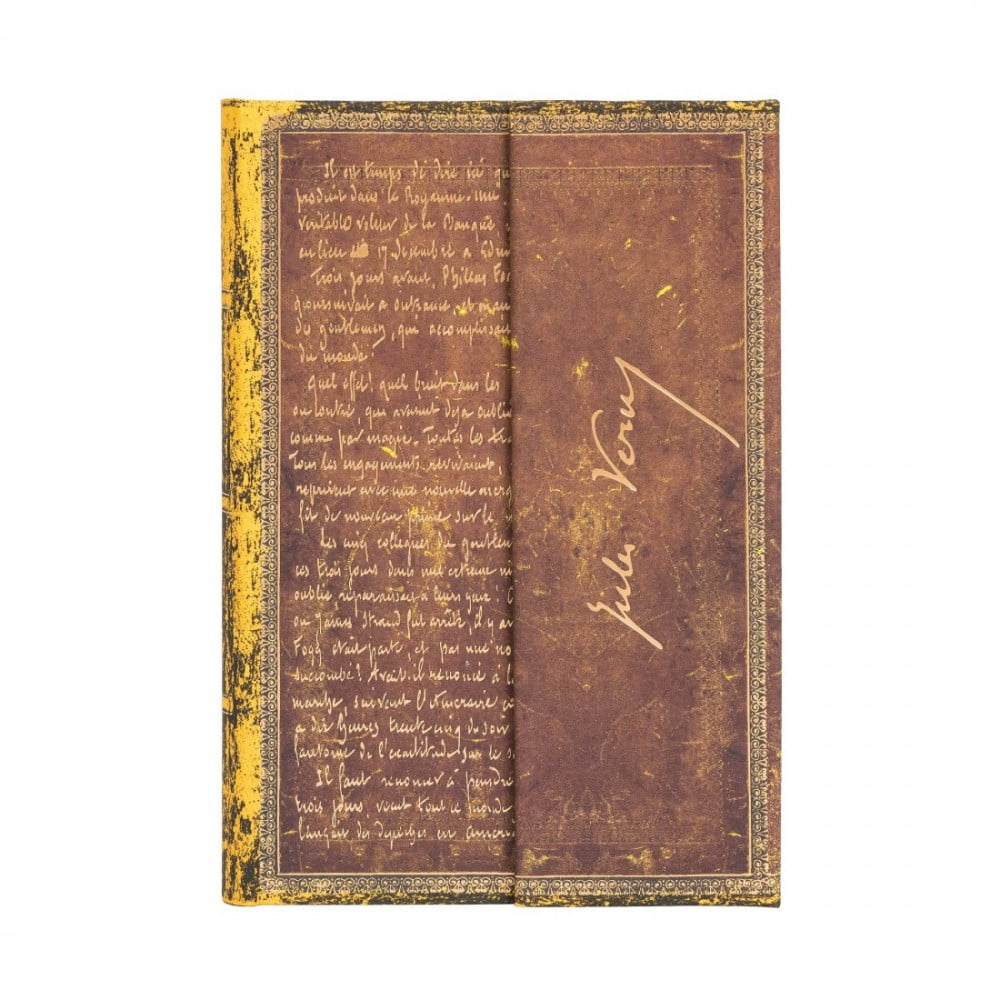 Il est temps de dire ici qu
produit dans le Royaume-Uni
véritable voleur de la Banque
eu lieu le 17 décembre à Edim
Trois jours avant, Phileas Fo
poursuivait à outrance, et
de gentlemen, qui accomplissait
du monde!
Quel effet! quel bruit dans les
ou contre, qui avaient déjà oublié
comme par magie. Toutes les tra
Tous les engagements revivaient,
reprirent avec une nouvelle énerg
fit de nouveau prime sur le
Les cinq collègues du gentlem
ces trois jours dans une extrême
oublié reparaissait à leurs yeux!
où James Strand fut arrêté, il y av
Fogg était parti, et pas une no
succombé! Avait-il renoncé à l
marche, suivant l'itinéraire
à dix heures trente cinq du soir
fantôme de l'exactitude, sur le s
Il faut renoncer à peindre
trois jours, vécut tout ce monde
lançait des dépêches en Améri
Jules Verne